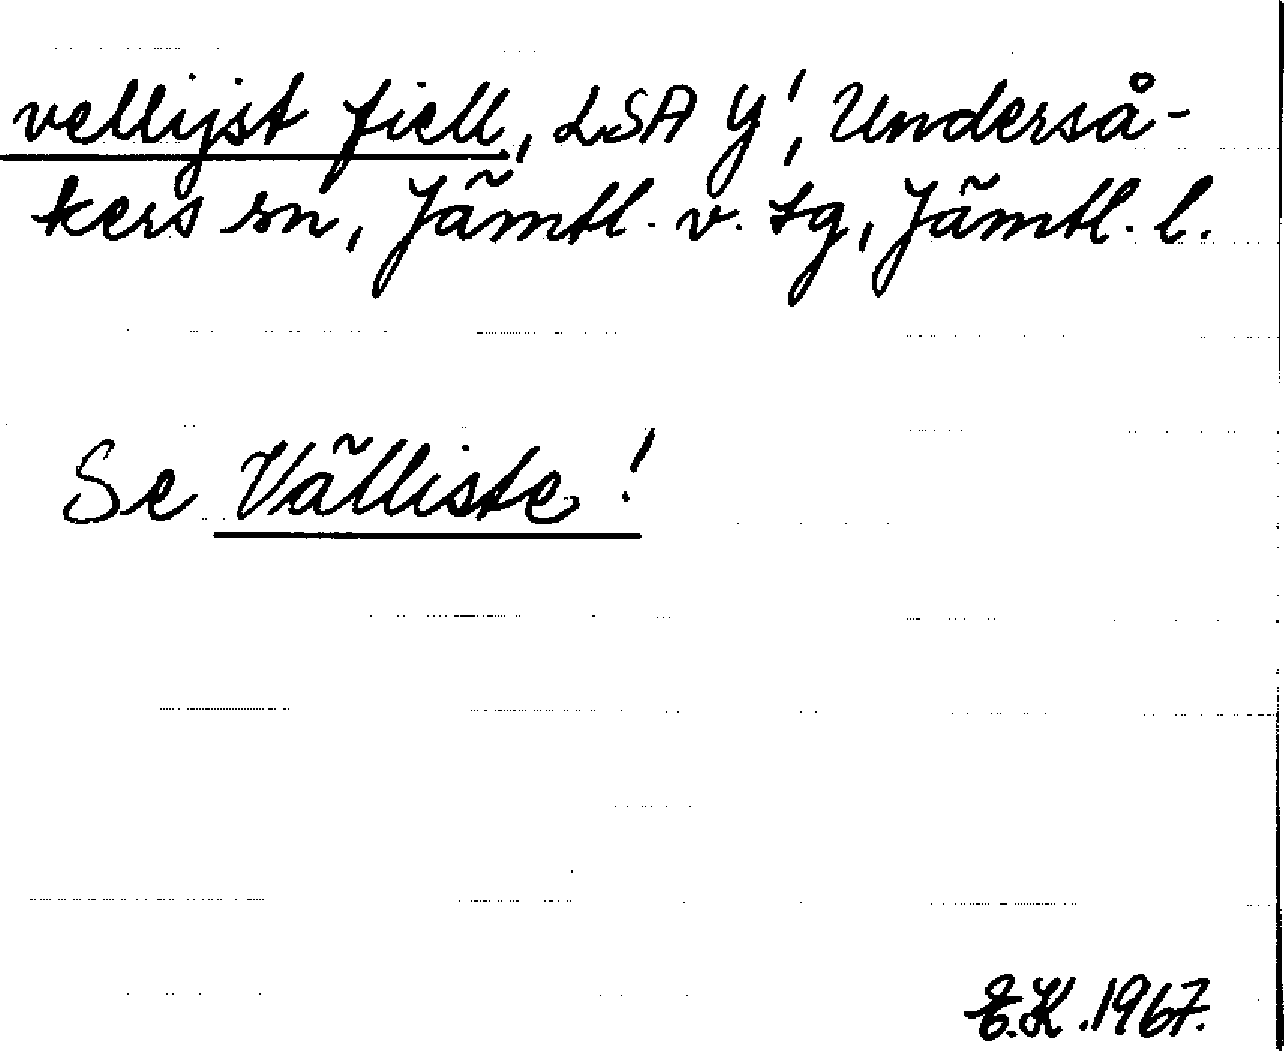 vellijst fiell, LSA Y!, Underså-
kers sn, Jämtl. v. tg, Jämtl. l.
Se Välliste!
E.K. 1967.